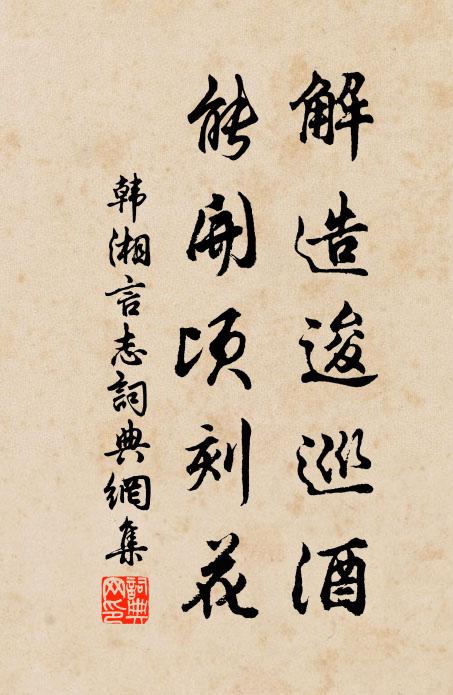 解造逡巡酒
能開頃刻花
韩湘言志詞典網集
詞典
网印